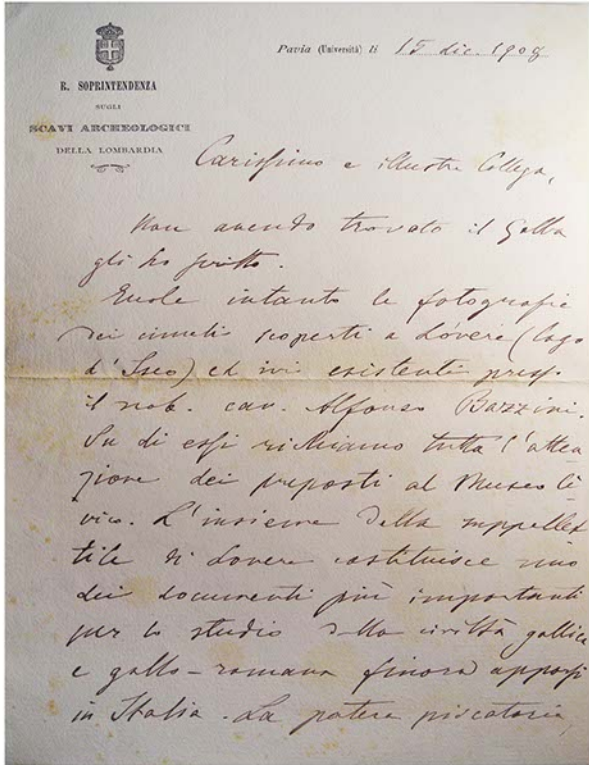 R. SOPRINTENDENZA
SUGLI
SCAVI ARCHEOLOGICI
DELLA LOMBARDIA
Pavia (Università) li 15 dic. 1908
Carissimo e illustre Collega,
Non avendo trovato il Galla
gli ho scritto.
Eccole intanto le fotografie
dei cimeli scoperti a Lóvere (lago
d'Iseo) ed ivi esistenti press.
il nob. cav. Alfonso Bazzini.
Su di essi richiamo tutta l'atten
zione dei preposti al Museo Ci
vico. L'insieme della suppellet
tile di Lovere costituisce uno
dei documenti più importanti
per lo studio della civiltà gallica
e gallo-romana finora apparsi
in Italia. La patera piscatoria,